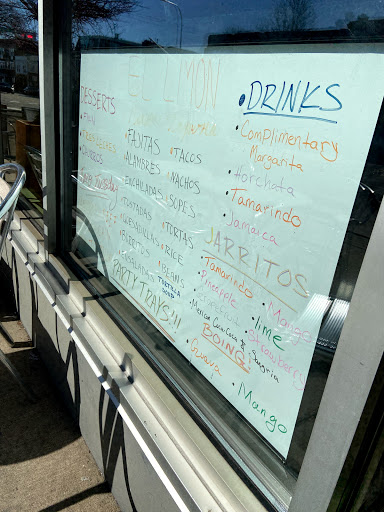 EL LIMON
DESSERTS
• FLAN
• TRES LECHES
• CHURROS
• FAJITAS
• TACOS
• ALAMBRES
• NACHOS
• ENCHILADAS
• SOPES
• TOSTADAS
• TORTAS
• QUESADILLAS
• RICE
• BURRITOS
• BEANS
PARTY TRAYS!!!
• DRINKS
• Complimentary
Margarita
• Horchata
• Tamarindo
• Jamaica
JARRITOS
• Tamarindo
• Mango
• Pineapple
• lime
• Strawberry
• Mexican Coca-Cola
• Sangria
BOING
• Guava
• Mango